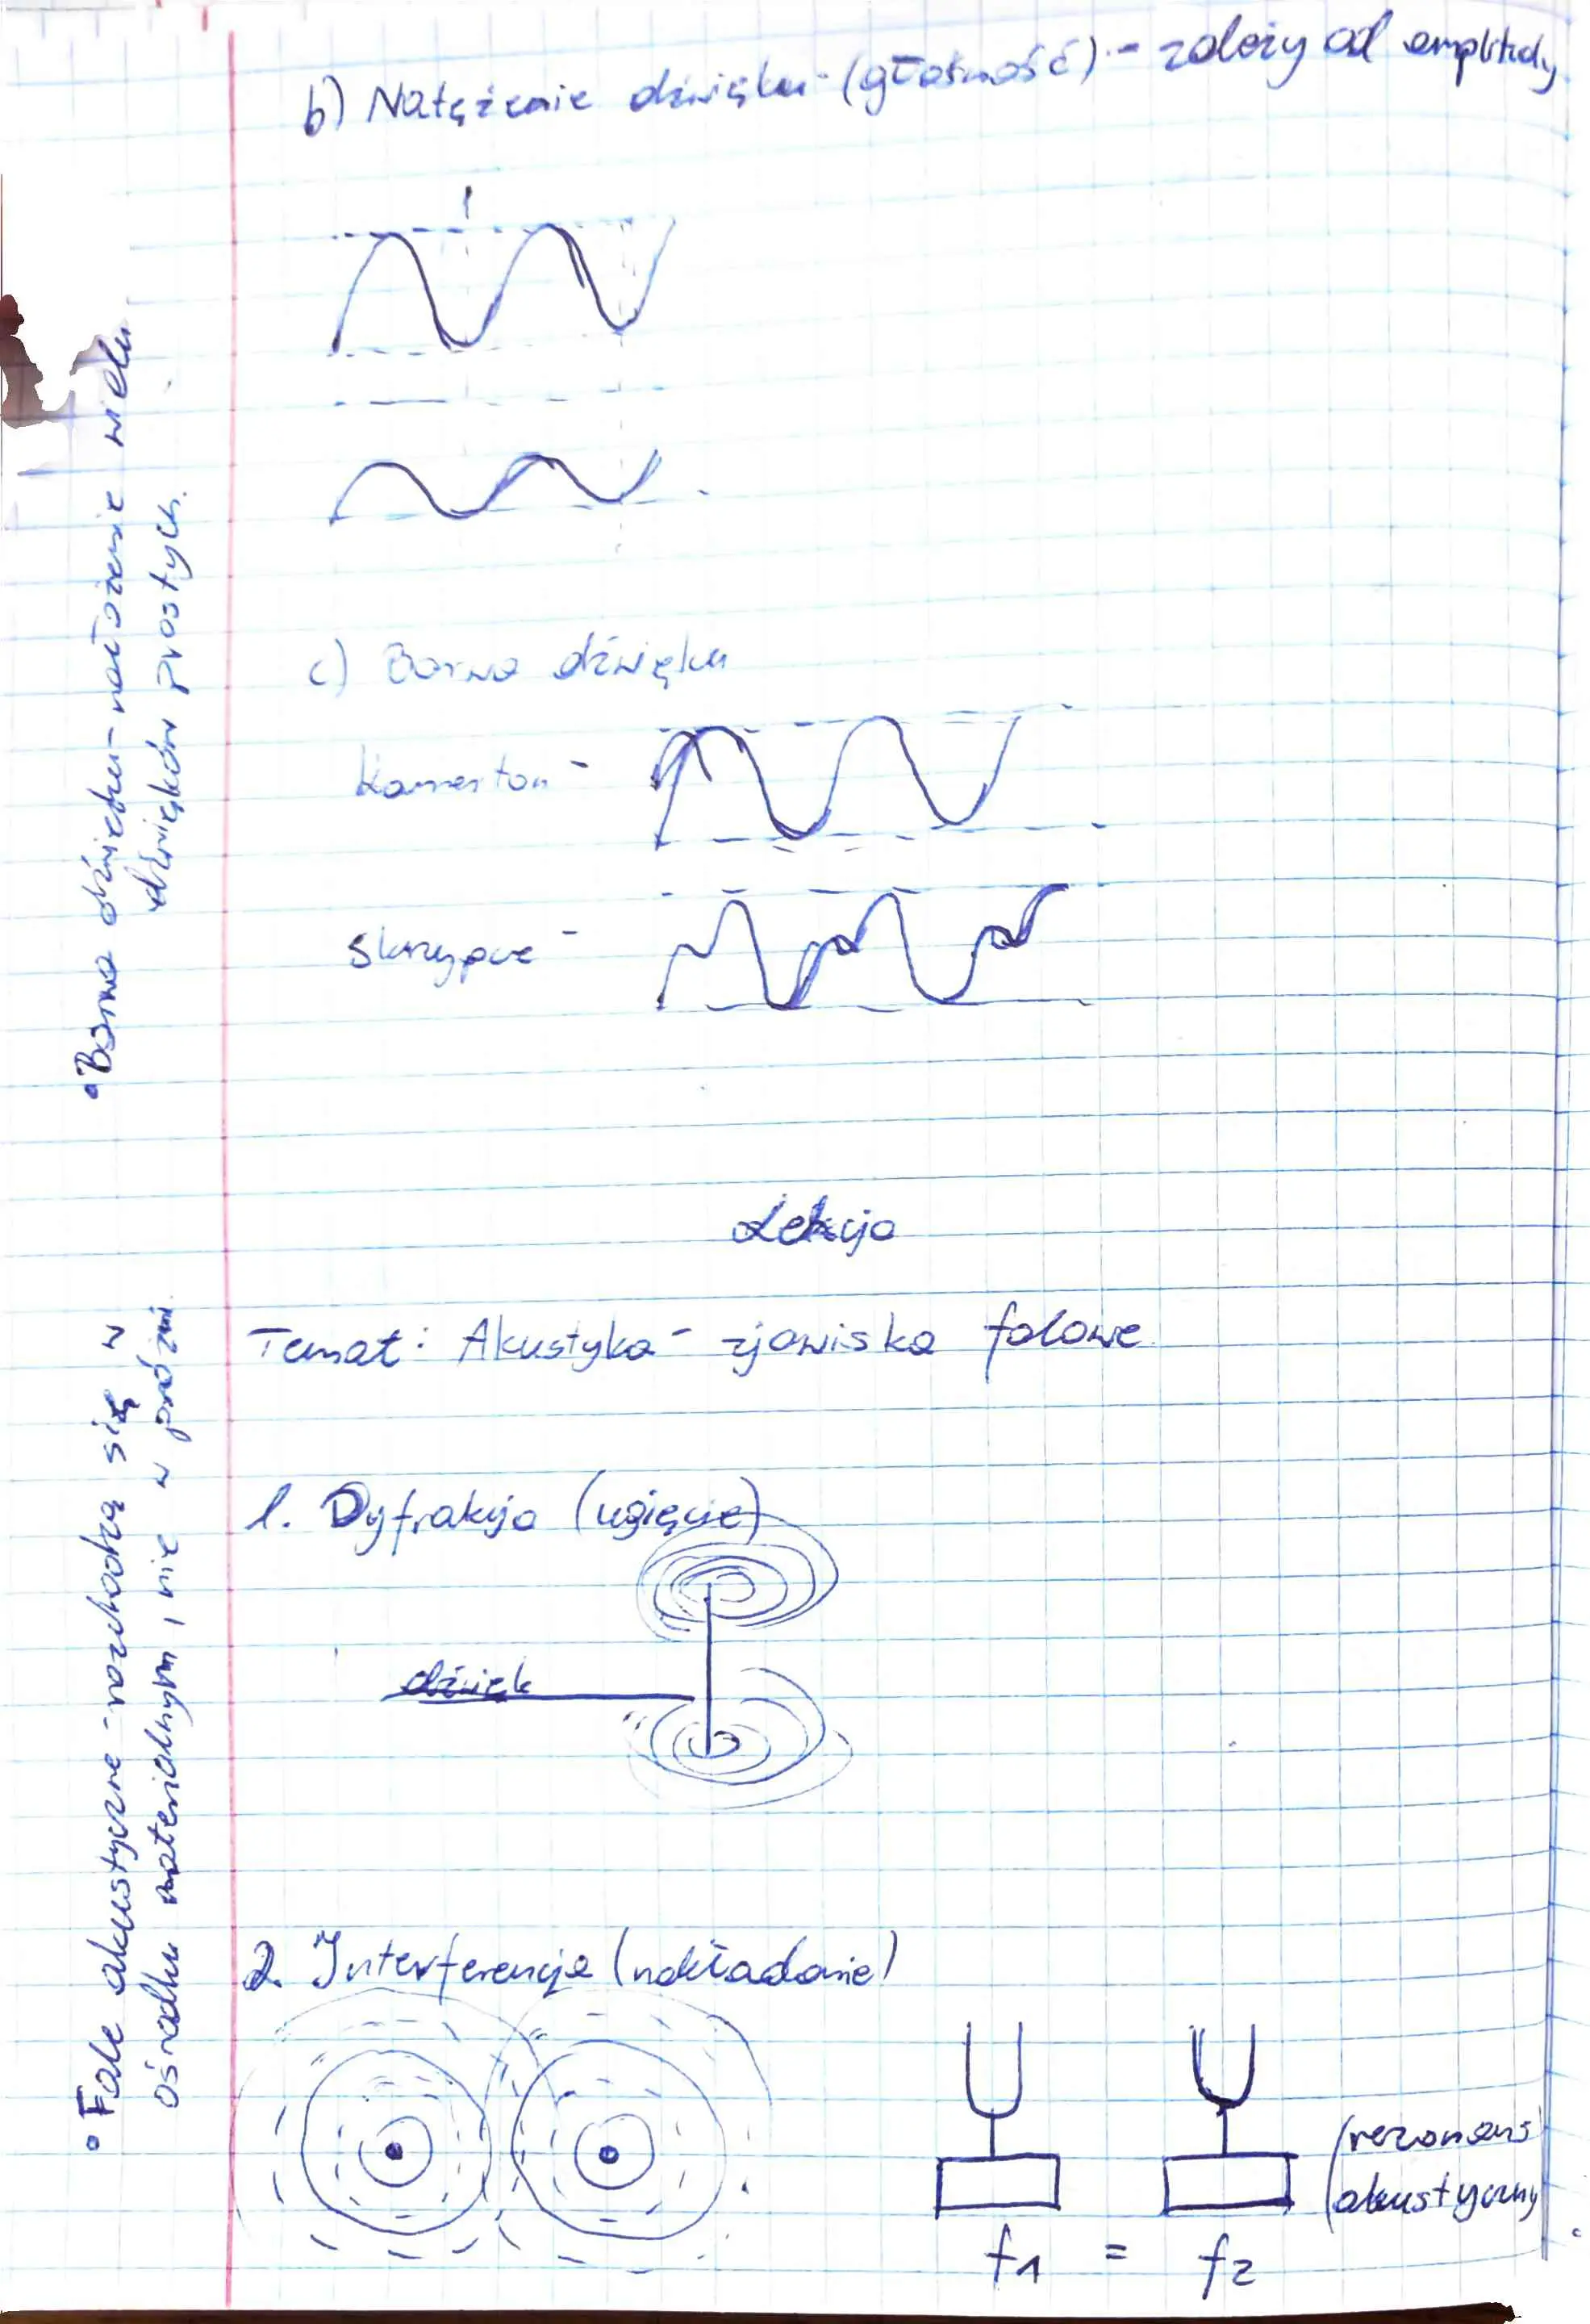 b) Natężenie dźwięku - (głośność) - zależy od amplitudy
c) Barwa dźwięku
kamerton -
skrzypce -
• Barwa dźwięku - nałożenie wielu
dźwięków prostych.
Lekcja
Temat: Akustyka - zjawiska falowe
1. Dyfrakcja (ugięcie)
dźwięk
2. Interferencja (nakładanie)
(rezonans
akustyczny
f1 = f2
• Fale akustyczne - rozchodzą się w
ośrodku materialnym, nie w próżni.